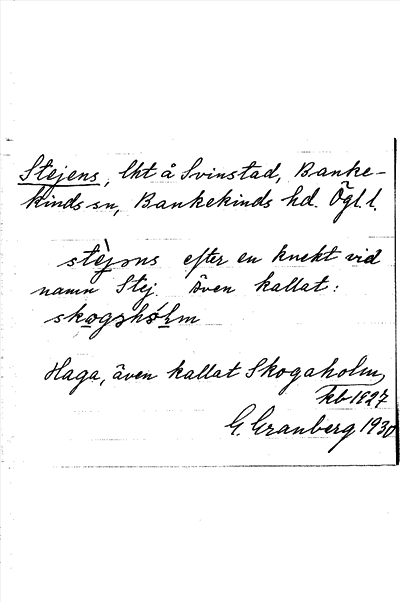 Stejens, lht å Svinstad, Banke-
kinds sn, Bankekinds hd. Ögl. l.
stèjɔns efter en knekt vid
namn Stej. Även kallat:
skogshólm
Haga, även kallat Skogaholm,
kb 1827
G. Granberg 1930